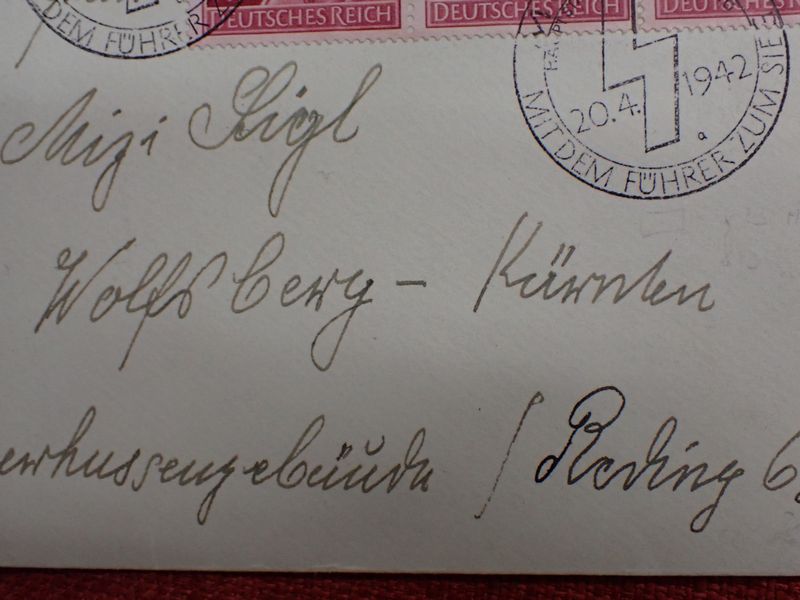 DEUTSCHES REICH DEUTSCHES REICH DEUTSCHES REICH
DEM FÜHRER
20.4. 1942
a
MIT DEM FÜHRER ZUM SIE
Mizi
Wolfsberg - Kärnten
gebäude / Reding 6